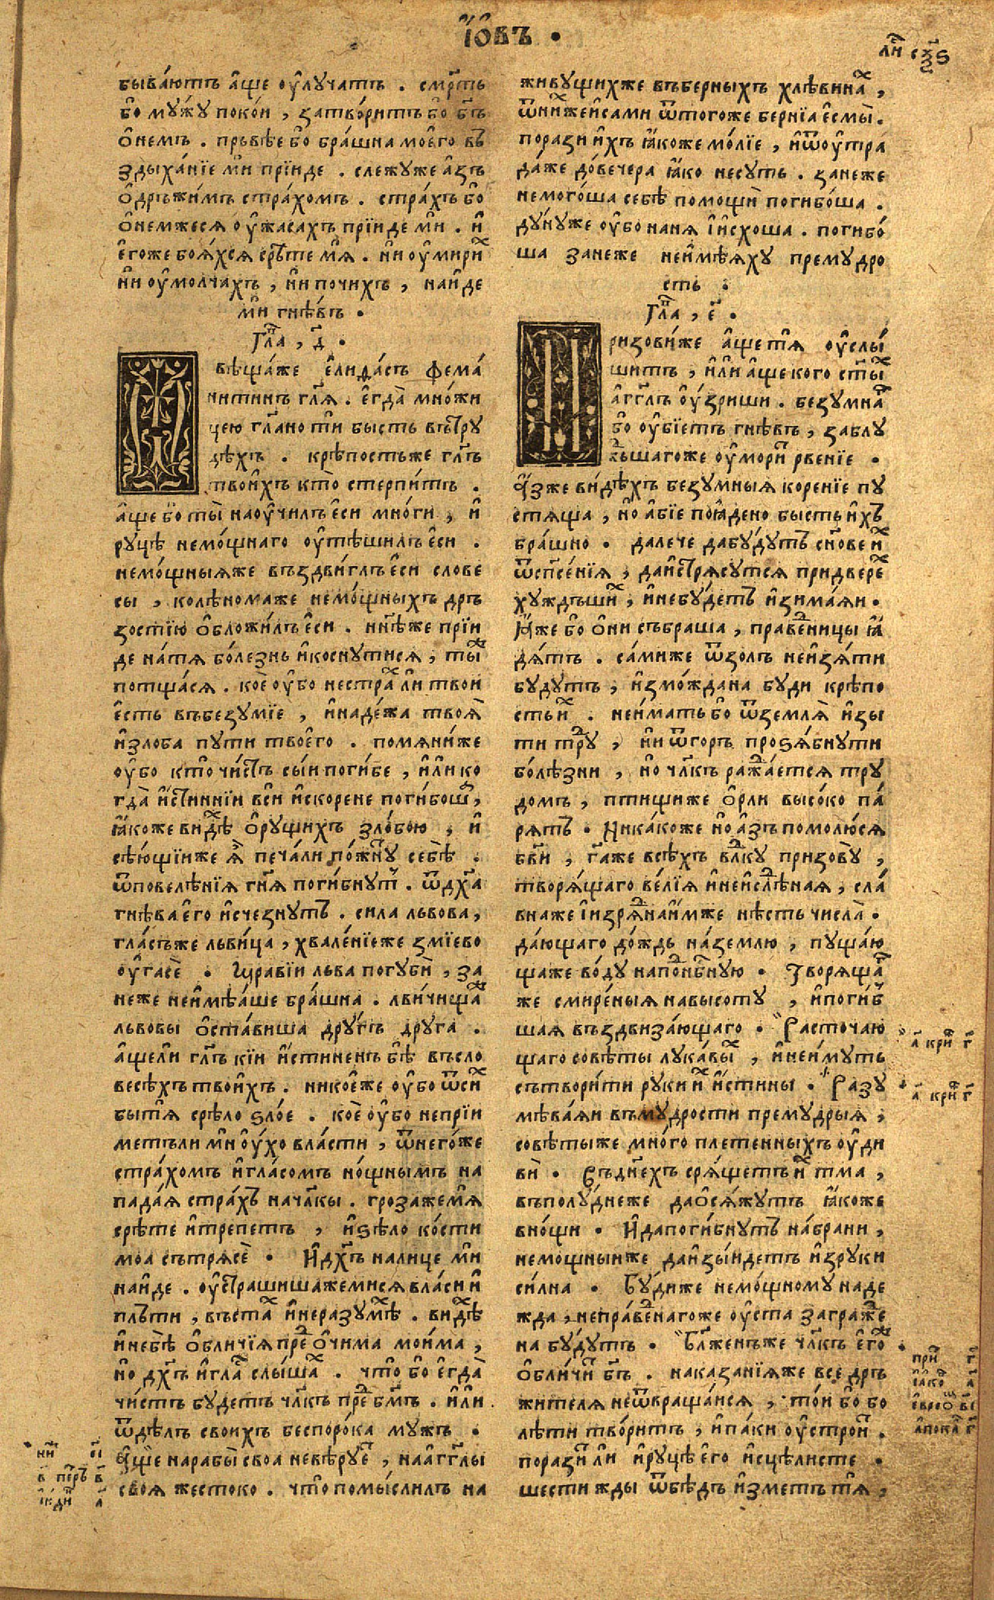 І҆́ѡ҆въ ·
ли́ сх҃ѕ
быва́ютъ а҆́ще оу҆лу́чатъ . сме́рть
бо мꙋ́жꙋ поко́и , затвори́тъ бо бг҃ъ
ѻ҆не́мъ . пръвѣ́е бо бра́шна моегѡ̀ въ
здыха́нїе мѝ прїи́де . слежꙋ́же а҆́зъ
ѻ҆дръжи́мъ стра́хомъ . стра́хъ бо
ѻ҆не́мжеся оу҆жаса́хъ прїи́де мѝ . и҆
е҆го́же боя́хся сръ́те мя̀ . ни оу҆мири́х
ни оу҆молча́хъ , ни почи́хъ , на́йде
мѝ гнѣ́въ .
Гла , д҃ .
ѿвѣща́же є҆лида́съ фема́
нитинъ гл҃я . є҆гда̀ мно́жи
цею гл҃ано ти бы́сть въ трꙋ
дѣ́хъ . крѣ́постьже гл҃ъ
твои́хъ кто̀ стерпи́тъ .
а҆́ще бо ты̀ наоу҆чи́лъ є҆сѝ мно́ги , и҆
рꙋцѣ немо́щнаго оу҆тѣ́шилъ є҆сѝ .
немо́щныяже въздви́глъ є҆сѝ слове
сы̀ , колѣ́номаже немо́щныхъ дръ
зостїю ѻ҆бложи́лъ є҆сѝ . ны́нѣже прїи́
де натя̀ болѣ́знь и҆коснꙋ́тися , ты́ж
потща́ся . коѐ оу҆бо нестра́х ли тво́й
є҆́сть въбезꙋ́мїе , и҆наде́жа твоя̀
и҆зло́ба пꙋтѝ твоегѡ̀ . помяни́же
оу҆бо кто̀ чи́стъ сы́и поги́бе , и҆ли ко
гда̀ и҆́стиннїи всѝ и҆скорене поги́боша ,
ꙗ҆́коже ви́дѣх ѻ҆рꙋ́щихъ зло́бою , и҆
сѣ́ющїиже я҆̀ печа́ли по́жнꙋт себѣ̀ .
ѿповелѣ́нїя гн҃я поги́бнꙋт . ѿдх҃а
гнѣ́ва є҆го̀ и҆сче́знꙋтъ . си́ла льво́ва ,
гла́съже льви́ца , хвале́нїеже змїе́во
оу҆гасѐ . Мравїи льва погꙋбѝ , за
не́же неи҆мѣ́яше бра́шна . льви́чища
льво́вы ѻ҆ста́виша дрꙋ́гъ дрꙋ́га .
а҆́щели гл҃ъ кі́и и҆́стиненъ бѣ̀ въсло
весѣ́хъ твои́хъ . нико́еже оу҆бо ѿси́х
бы́ тя̀ срѣ́ло ѕло́е . коѐ оу҆бо непрїи́
метъли мѝ оу҆́хо вла́сти , ѿнего́же
стра́хомъ и҆гла́сомъ нощны́мъ на
па́дая стра́хъ начл҃ки . гроза́жемя̀
срѣ́те и҆тре́петъ , и҆ѕѣло̀ ко́сти
моа сътрясѐ . И҆дх҃ъ налицѐ мѝ
на́йде . оу҆страши́шажемися вла́си и҆
плъ́ти , въста́х и҆неразꙋмѣ́х . ви́дѣх
и҆небѣ̀ ѻ҆бли́чїя пред ѻ҆чи́ма мои́ма ,
но дх҃ъ и҆гла́с слы́шах . что̀ бо є҆гда̀
чи́стъ бꙋ́детъ чл҃къ пред бг҃мъ . и҆ли
ѿдѣ́лъ свои́хъ беспоро́ка мꙋ́жъ .
а҆́ще нарабы̀ своа невѣ́рꙋет , нааг҃глы
своя̀ же́стоко . что̀ помы́слилъ на
живꙋ́щихже въбе́рныхъ хлѣ́винах ,
ѿни́хжеи҆са́ми ѿтого́же бе́рнїа є҆смы̀ .
поразѝ и҆́хъ ꙗ҆́коже мо́лїе , и҆ѿоу҆́тра
да́же до́вечера ꙗ҆́ко несꙋ́ть . зане́же
немого́ша себѣ̀ помощѝ погибо́ша .
дꙋ́нꙋже оу҆бо наня̀ і҆и҆схо́ша . погибо́
ша зане́же неи҆мѣ́яхꙋ премꙋ́дро
сть .
Гла , є҃ .
Призови́же а҆́щетя̀ оу҆слы́
шитъ , и҆ли а҆́ще кого ст҃ых
а҆́г҃глъ оу҆́зриши . безꙋ́мнаг
бо оу҆бїе́тъ гнѣ́въ , заблꙋ́
жьшагоже оу҆мори́т рве́нїе .
а҆́зже ви́дѣхъ безꙋ́мныя коре́нїе пꙋ
стяща , но а҆́бїе поꙗ҆дено бы́сть и҆́хъ
бра́шно . дале́че дабꙋ́дꙋтъ сн҃ове и҆́х
ѿсп҃се́нїя , даи҆стря́сꙋтся придве́рех
хꙋ́ждъши́х , и҆небꙋ́детъ и҆зима́яи .
И҆́же бо ѻ҆нѝ събра́ша , пра́ведницы ꙗ҆
дя́тъ . са́миже ѿзо́лъ неи҆зя́ти
бꙋ́дꙋтъ , и҆змо́ждана бꙋ́ди крѣ́по
сть и҆́х . неи́мать бо ѿземля̀ и҆зы
ти трꙋ́д , ни ѿго́ръ проѕя́бнꙋти
болѣ́зни , но чл҃къ ража́ется трꙋ
до́мъ , пти́щиже ѻ҆́рли высо́ко па́
рятъ . Ника́коже но а҆́зъ помолю́ся
бг҃ви , гд҃аже всѣ́хъ вл҃кꙋ призовꙋ̀ ,
творя́щаго ве́лїя и҆неи҆слѣ́дная , сла́
внаже і҆изря́днаи҆́мже нѣ́сть числа̀ .
даю́щаго до́ждь на́землю , пꙋща́ю
щаже во́дꙋ наподнб҃нꙋю . Творя́щаг
же смире́ныя навысотꙋ̀ , и҆поги́б
шая въздвиза́ющаго . Расточаю
щаго совѣ́ты лꙋка́вых , и҆неи́мꙋть
сътвори́ти рꙋки и҆́х и҆́стины . Разꙋ
мѣва́яи въмꙋ́дрости премꙋ́дрыя ,
совѣ́тыже мно́го плете́нныхъ оу҆дн
вѝ . Въ дн҃ехъ сря́щетъ и҆́х тма̀ ,
въполꙋ́днеже даѻ҆ся́жꙋтъ ꙗ҆́коже
вно́щи . И҆дапоги́бнꙋтъ на́брани ,
немо́щныиже даи҆зы́йдетъ и҆зрꙋки
си́лна . Бꙋ́диже немо́щномꙋ наде
жда , непра́веднагоже оу҆ста загра́жде
на бꙋ́дꙋтъ . Бл҃же́нъже чл҃къ є҆го́ж
ѻ҆бличѝ бг҃ъ . наказа́нїяже вседръ
жи́теля неѿвраща́ися , то́й бо бо
лѣ́ти твори́тъ , и҆па́ки оу҆стро́ит .
порази́т ли и҆рꙋ́цѣ є҆го̀ и҆сцѣли́сте .
шести́ жды ѿбѣ́дъ и҆́зметъ тя̀ ,
а҃ кри́н г҃
а҃ кри́н г҃
при́т г҃
і҆а́ков а҃
є҆вре́ѡм в҃і
а҆пока́л г҃
ни́ж є҃і
в҃ пе́тръ в҃
і҆ю́ди а҃